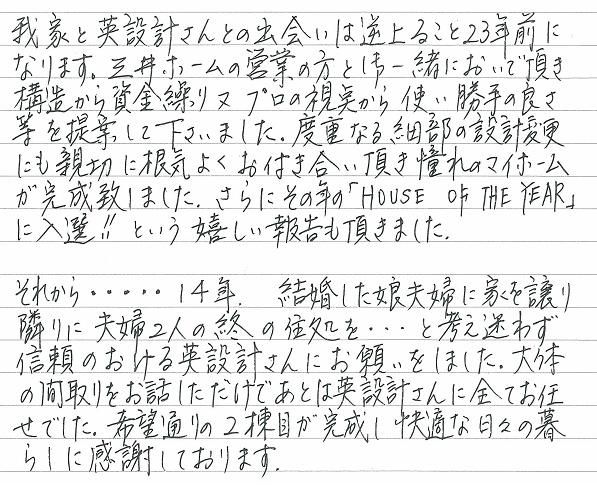 我家と英設計さんとの出会いは逆上ること23年前に
なります。三井ホームの営業の方とご一緒においで頂き
構造から資金繰り又プロの視点から使い勝手の良さ
等を提案して下さいました。度重なる細部の設計変更
にも親切に根気よくお付き合い頂き憧れのマイホーム
が完成致しました。さらにその年の「HOUSE OF THE YEAR」
に入選!! という嬉しい報告も頂きました。
それから・・・・・14年. 結婚した娘夫婦に家を譲り
隣りに夫婦2人の終の住処を・・・と考え迷わず
信頼のおける英設計さんにお願いをしました。大体
の間取りをお話しただけであとは英設計さんに全てお任
せでした。希望通りの2棟目が完成し快適な日々の暮
らしに感謝しております。